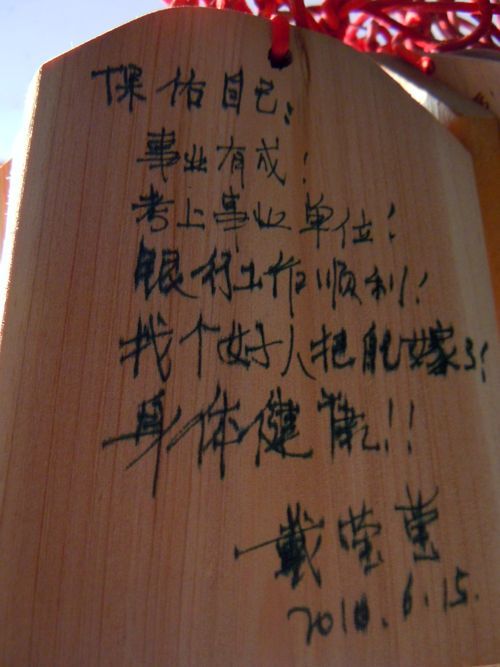 保佑自己:
事业有成!
考上事业单位!
银行工作顺利!
找个好人把自己嫁了!
身体健康!!
戴莹莹
2010.6.15.